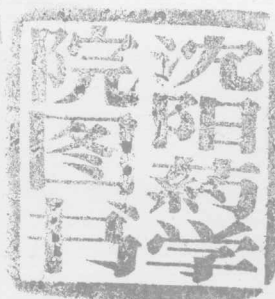 沈阳药学
院图书